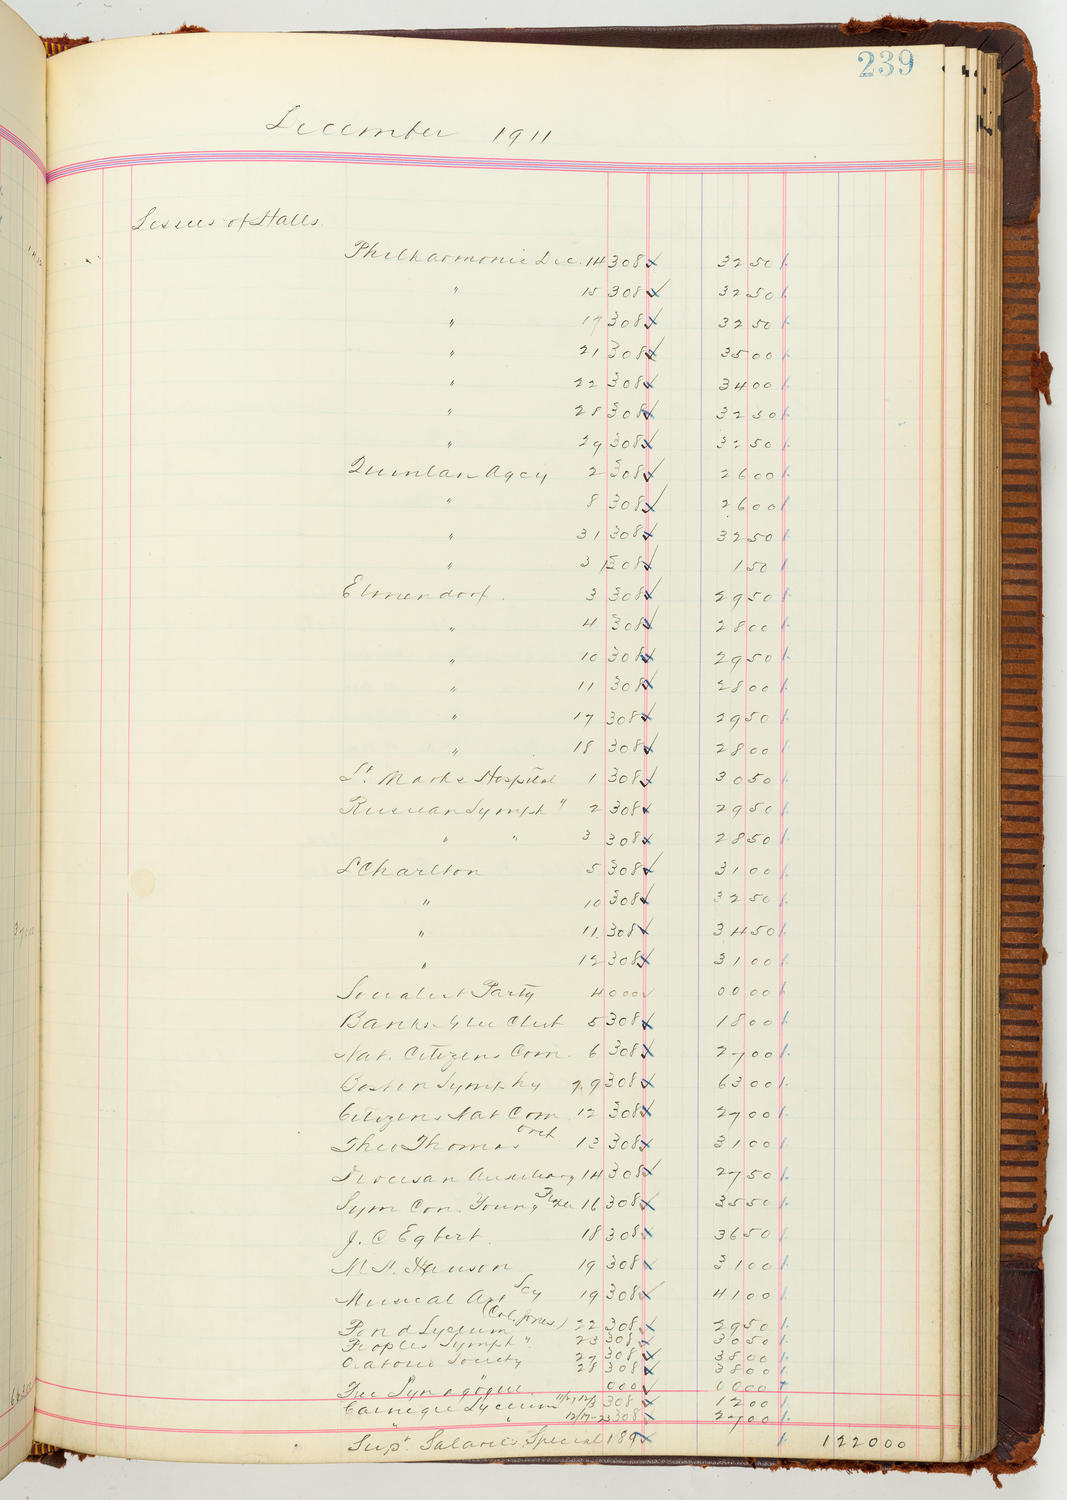 239
December 1911
Lessees of Halls
Philharmonic Dec. 14 308 3250
" 15 308 3250
" 17 308 3250
" 21 308 3500
" 22 308 3400
" 28 308 3250
" 29 308 3250
Quinlan Agcy 2 308 2600
" 8 308 2600
" 31 308 3250
" 31 308 150
Elmendorf. 3 308 2950
" 4 308 2800
" 10 308 2950
" 11 308 2800
" 17 308 2950
" 18 308 2800
St. Marks Hospital 1 308 3050
Russian Symph " 2 308 2950
" " 3 308 2850
L Charlton 5 308 3100
" 10 308 3250
" 11 308 3450
" 12 308 3100
Socialist Party 4 000 0000
Banks Glee Club 5 308 1800
Nat. Citizens Com. 6 308 2700
Boston Symphy 7.9 308 6300
Citizens Nat Com 12 308 2700
Theo Thomas Orch 13 308 3100
Diocesan Auxiliary 14 308 2750
Sym Con. Young 16 308 3550
J. C Egbert. 18 308 3650
M. H. Hanson 19 308 3100
Musical Art Scy 19 308 4100
Pond Lyceum (Col. Jones) 22 308 2950
Peoples Symph " 23 308 3050
Oratorio Society 27 308 3800
" 28 308 3800
Free Synagogue 000 0000
Carnegie Lyceum 11/27 12/3 308 1200
" " 12/17-23 308 2700
Supt. Salaries, Special 189 122000